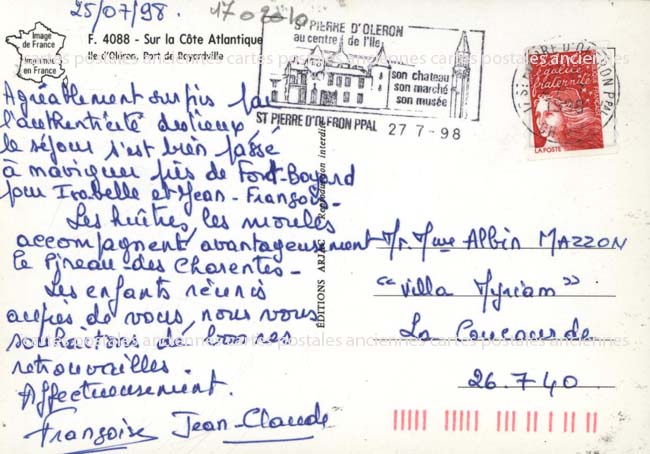 25/07/98.
17 02 010
Image
de France
Imprimée
en France
F. 4088 - Sur la Côte Atlantique
Ile d'Oléron, Port de Boyardville
ST PIERRE D'OLERON
au centre de l'Ile
son chateau
son marché
son musée
ST PIERRE D'OLERON PPAL
27 7 - 98
ST PIERRE D'OLERON PPAL
egalité
fraternité
LA POSTE
Agréablement surpris par
l'authenticité des lieux
le séjour s'est bien passé
à naviguer près de Fort-Boyard
pour Isabelle et Jean-François -
Les huîtres, les moules
accompagnent avantageusement
le Pineau des Charentes -
Les enfants réunis
auprès de vous, nous vous
souhaitons de bonnes
retrouvailles.
Affectueusement.
Françoise Jean-Claude
EDITIONS Reproduction interdite
Mr. Mme Albin MAZZON
"Villa Myriam"
La Coucourde
26.740
cartes postales anciennes cartes postales anciennes cartes postales anciennes
cartes postales anciennes cartes postales anciennes cartes postales anciennes